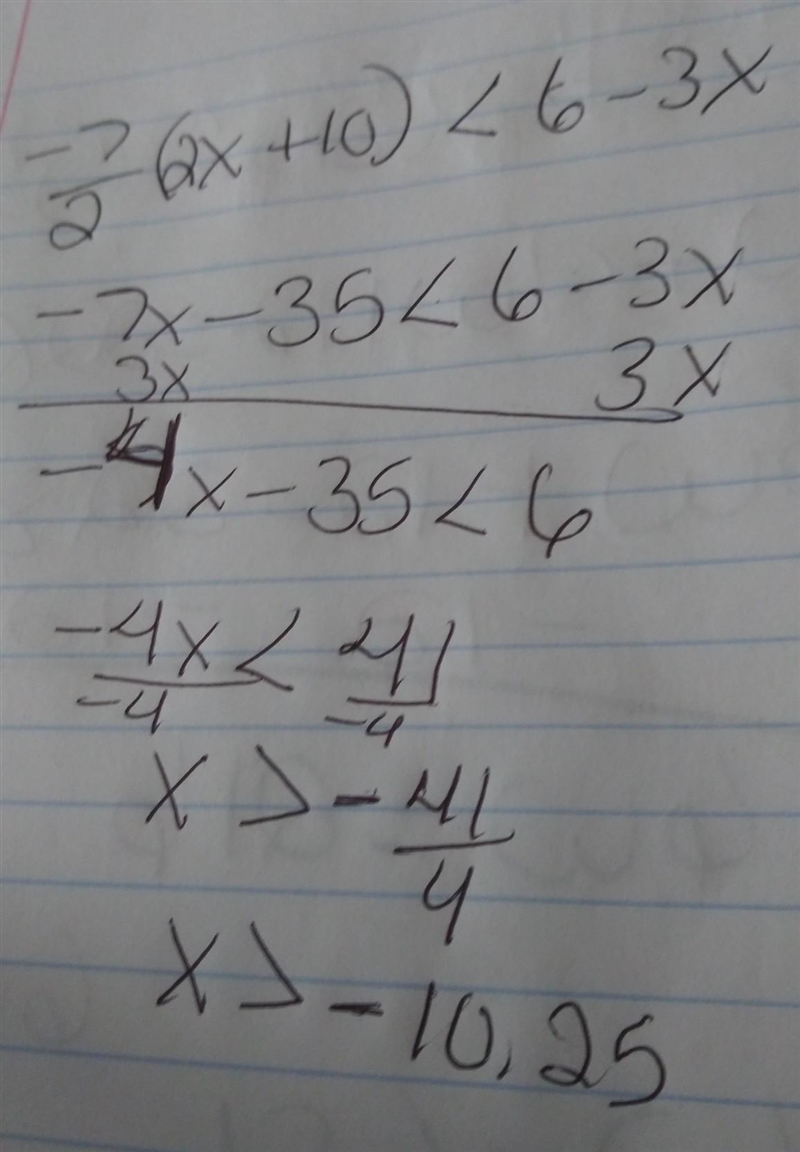 -7/2 (2x + 10) < 6 - 3x
-7x - 35 < 6 - 3x
3x 3x
-4x - 35 < 6
-4x/-4 < 41/-4
x > -41/4
x > -10,25